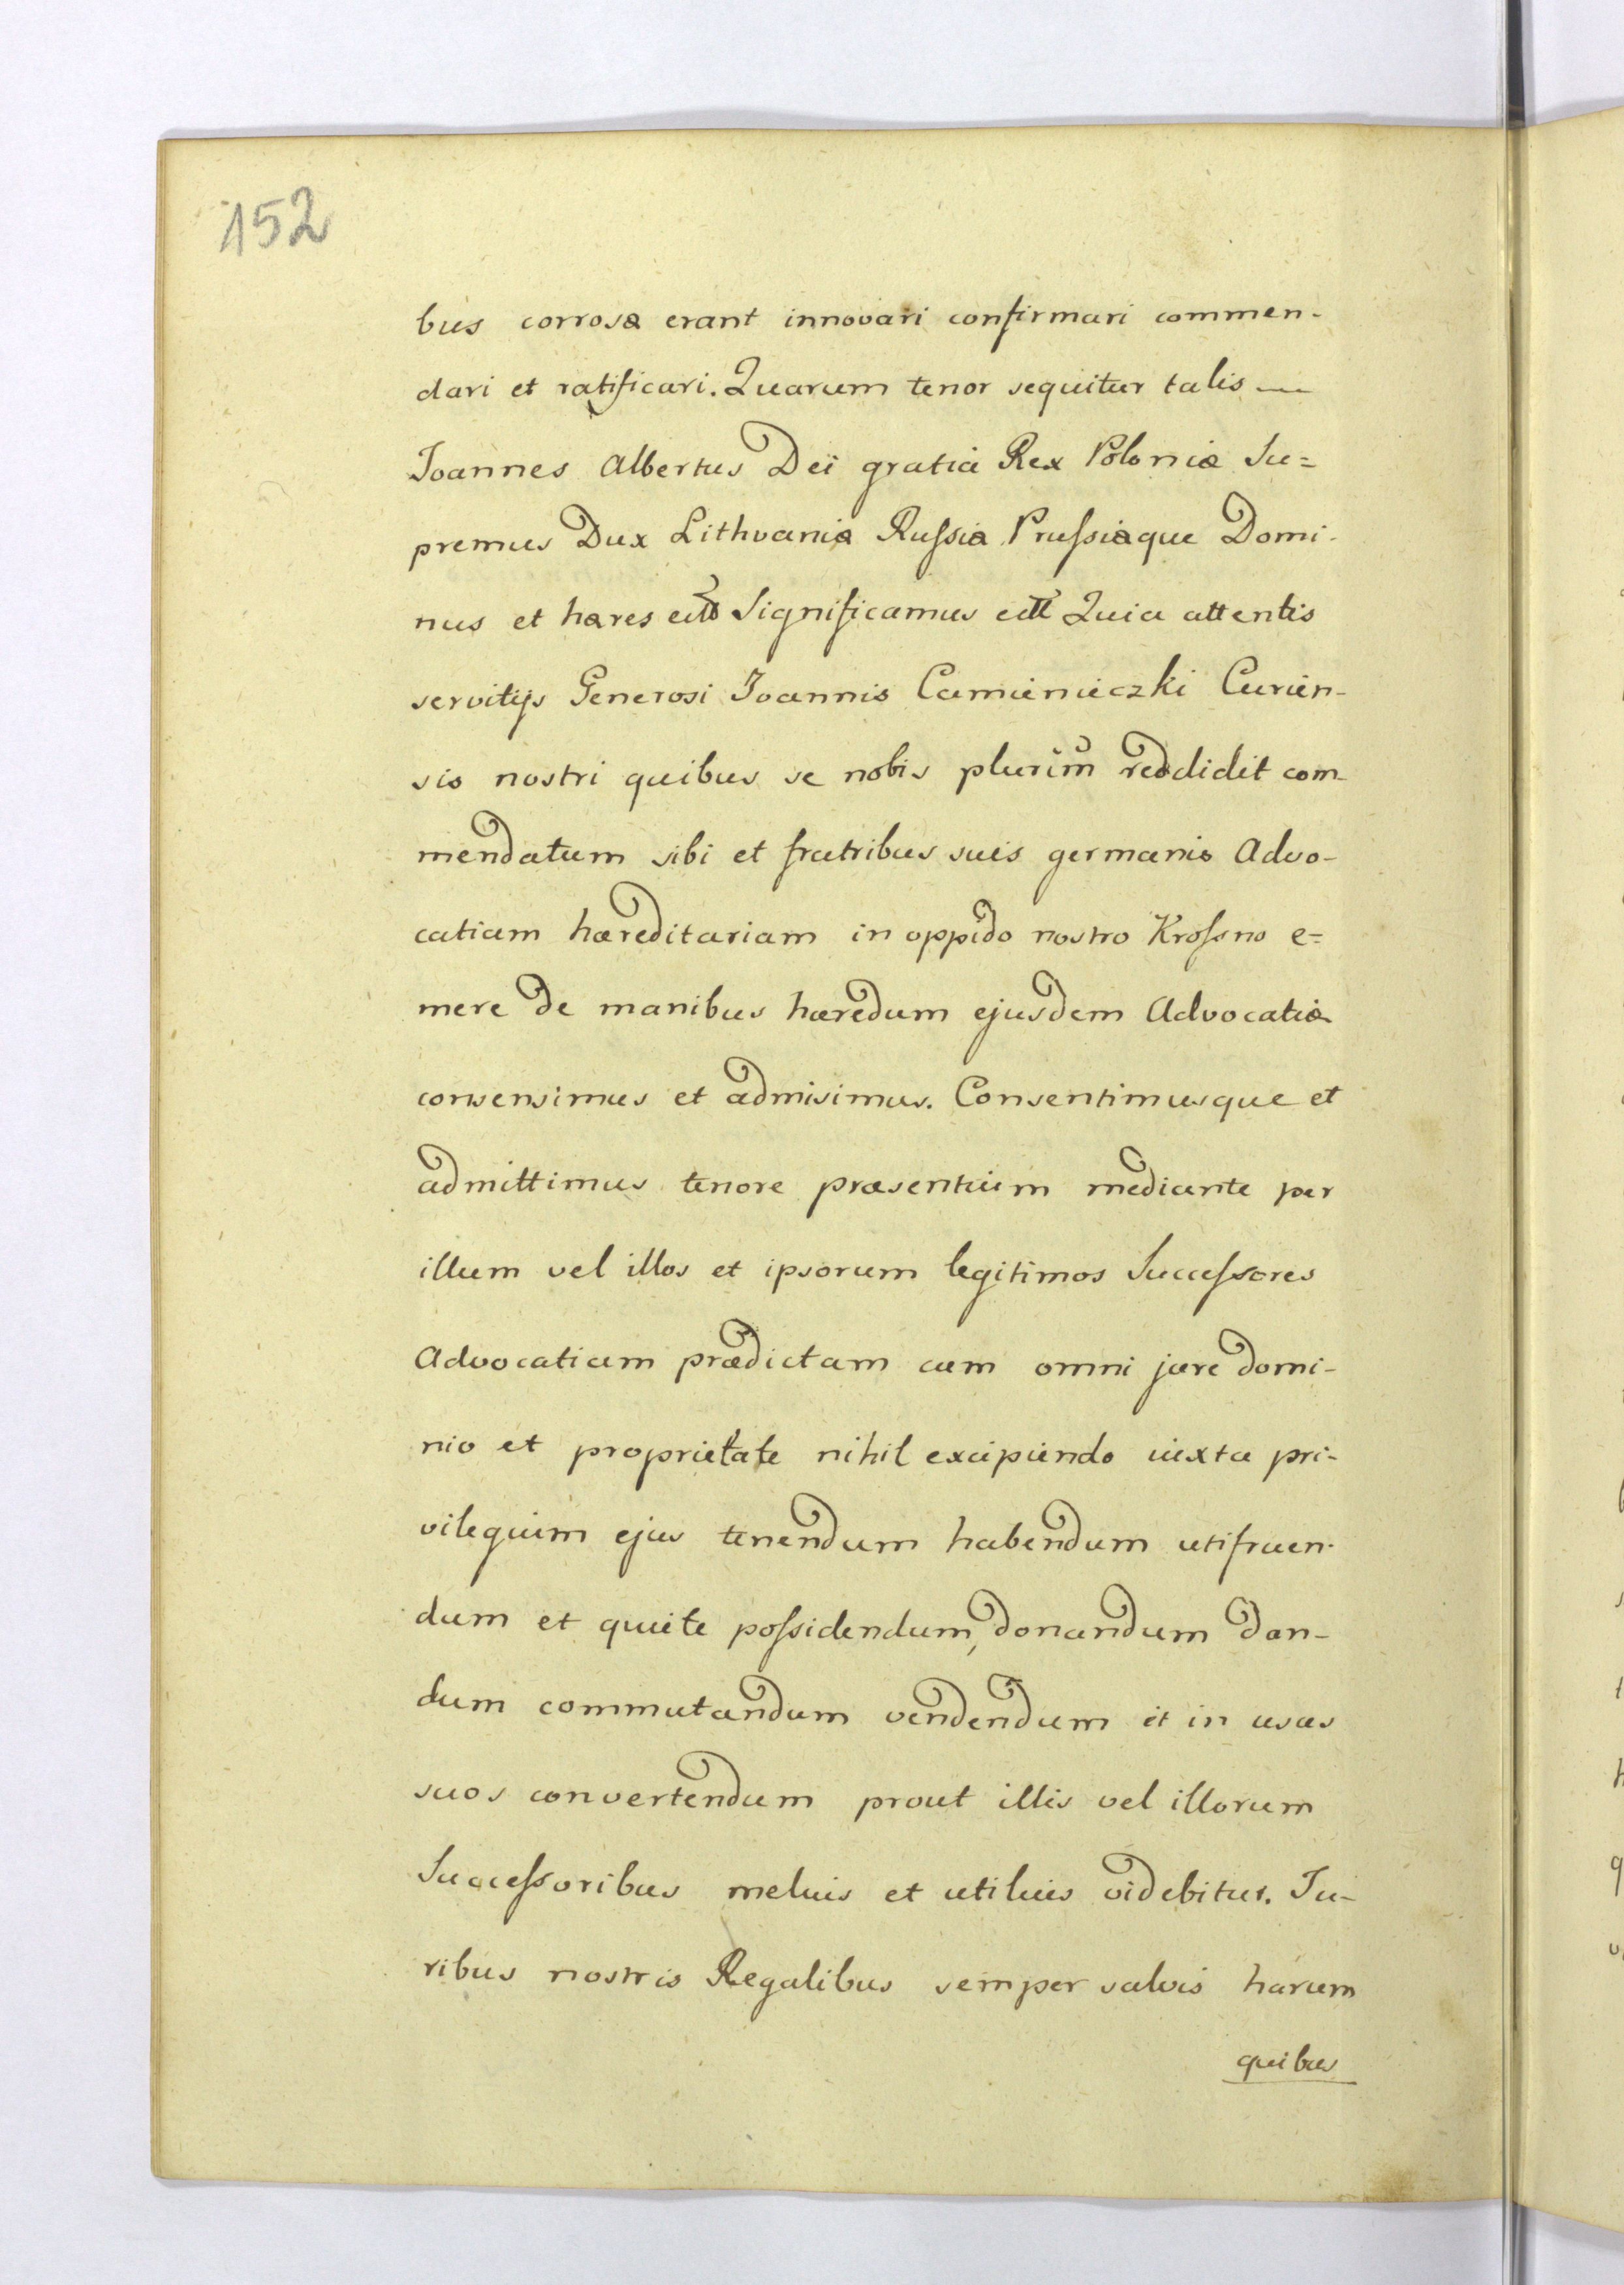 152
bus corrosæ erant innovari confirmari commen-
dari et ratificari. Quarum tenor sequitur talis —
Joannes Albertus Dei gratia Rex Poloniæ Su=
premus Dux Lithvaniæ Russiæ Prussiæque Domi-
nus et hæres Significamus Quia attentis
servitijs Generosi Joannis Camienieczki Curien-
sis nostri quibus se nobis plurim̃ reddidit com-
mendatum sibi et fratribus suis germanis Advo-
catiam hæreditariam in oppido nostro Krossno e=
mere de manibus hæredum ejusdem Advocatiæ
consensimus et admisimus. Consentimusque et
admittimus tenore præsentium mediante per
illum vel illos et ipsorum legitimos Successores
Advocatiam prædictam cum omni jure domi-
nio et proprietate nihil excipiendo iuxta pri-
vilegium ejus tenendum habendum utifruen-
dum et quiete possidendum, donandum dan-
dum commutandum vendendum et in usus
suos convertendum prout illis vel illorum
Successoribus melius et utilius videbitur. Ju-
ribus nostris Regalibus semper salvis harum
quibus